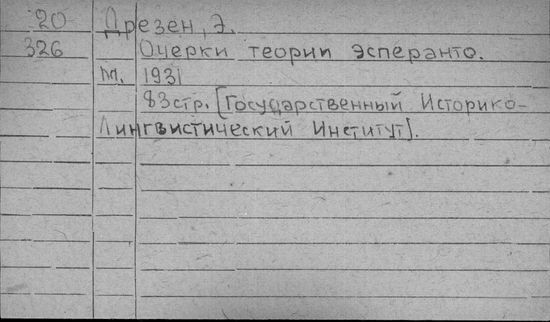 20 Дрезен, Э.
326 Очерки теории эсперанто.
М. 1931
83 стр. [Государственный Историко-
Лингвистический Институт].